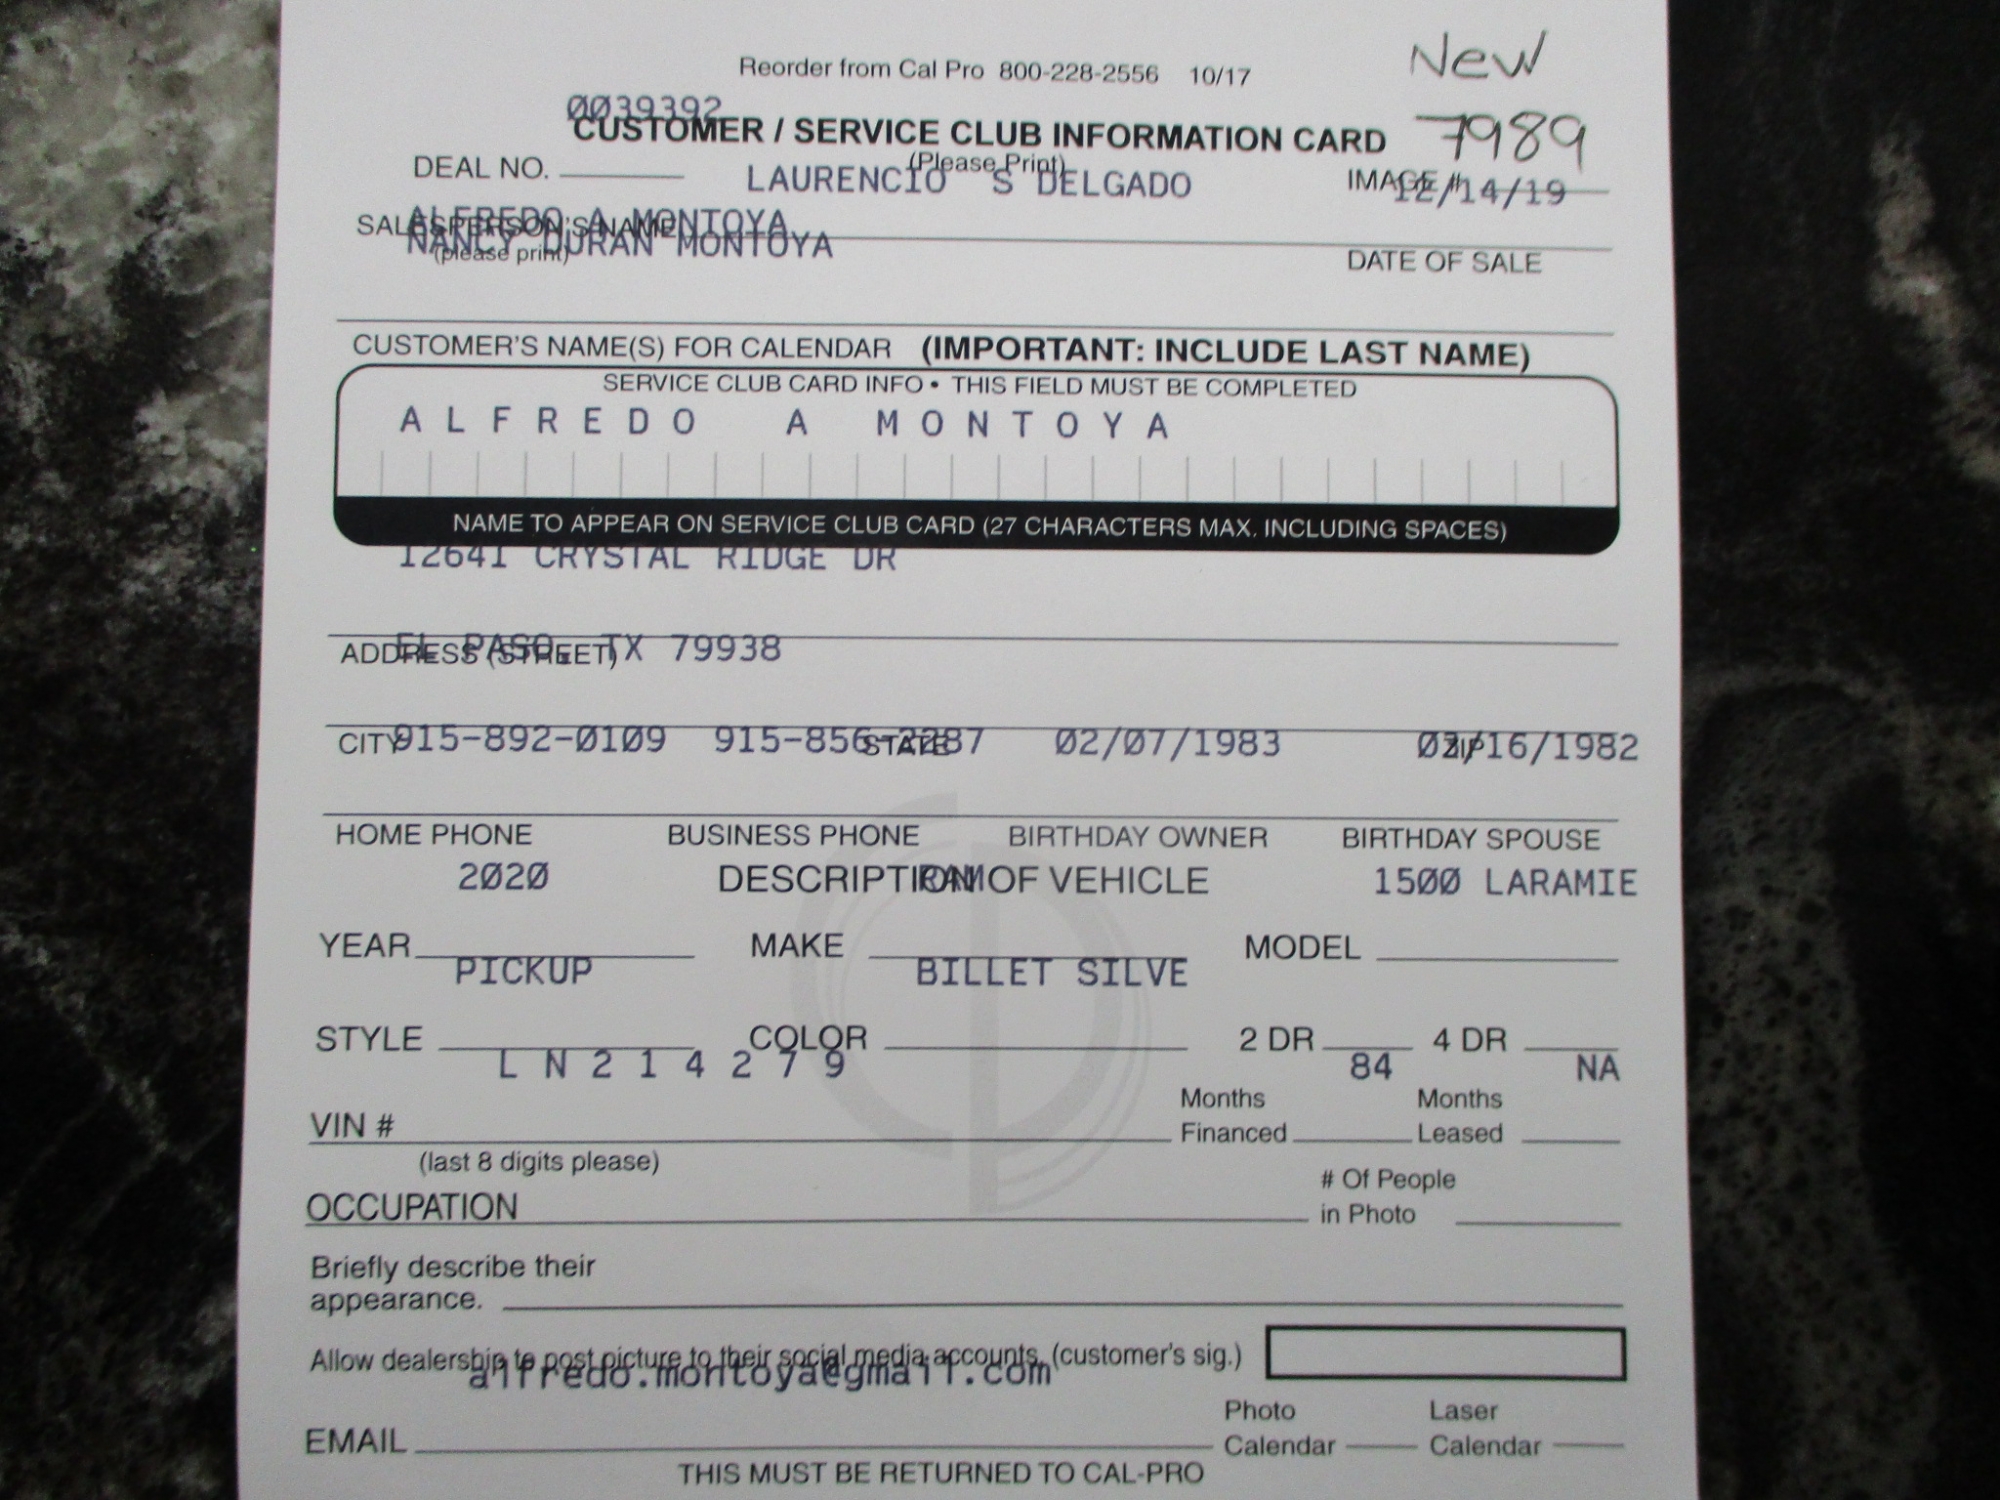 New
Reorder from Cal Pro 800-228-2556 10/17
0039392
CUSTOMER / SERVICE CLUB INFORMATION CARD 7989
(Please Print)
DEAL NO. LAURENCIO S DELGADO IMAGE # 12/14/19
ALFREDO A MONTOYA
SALESPERSON'S NAME
NANCY DURAN MONTOYA
(please print) DATE OF SALE
CUSTOMER'S NAME(S) FOR CALENDAR (IMPORTANT: INCLUDE LAST NAME)
SERVICE CLUB CARD INFO • THIS FIELD MUST BE COMPLETED
ALFREDO A MONTOYA
NAME TO APPEAR ON SERVICE CLUB CARD (27 CHARACTERS MAX. INCLUDING SPACES)
12641 CRYSTAL RIDGE DR
EL PASO, TX 79938
ADDRESS (STREET)
915-892-0109 02/07/1983
CITY STATE ZIP
HOME PHONE BUSINESS PHONE BIRTHDAY OWNER BIRTHDAY SPOUSE
2020 RAM 1500 LARAMIE
DESCRIPTION OF VEHICLE
YEAR MAKE MODEL
PICKUP BILLET SILVE
STYLE COLOR 2 DR 4 DR
LN214279 84 NA
VIN # Months Financed Months Leased
(last 8 digits please)
OCCUPATION # Of People in Photo
Briefly describe their
appearance.
Allow dealership to post picture to their social media accounts. (customer's sig.)
alfredo.montoya@gmail.com
EMAIL Photo Calendar Laser Calendar
THIS MUST BE RETURNED TO CAL-PRO